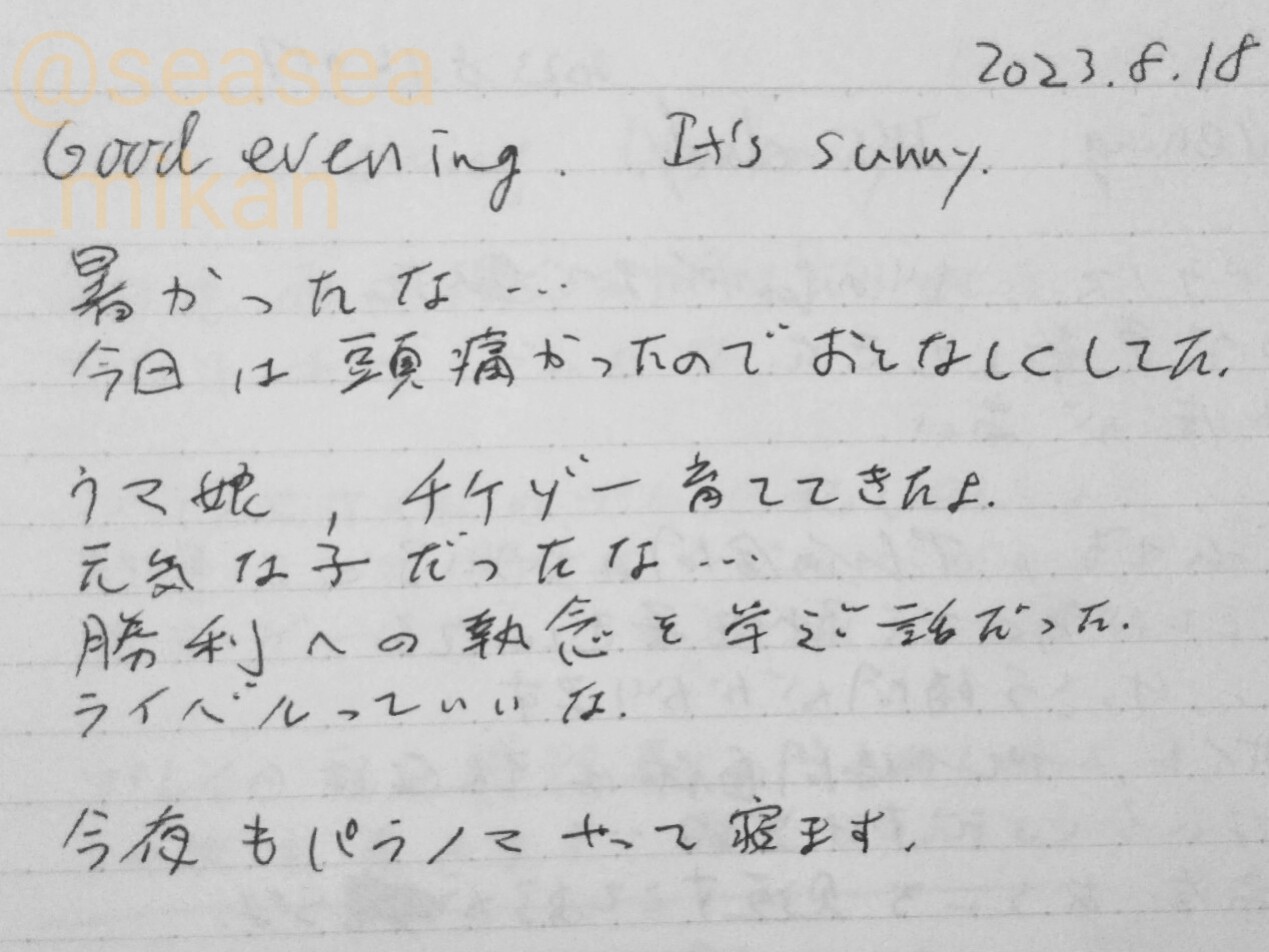 @seasea
_mikan
2023.8.18
Good evening. It's sunny.
暑かったな…
今日は頭痛かったのでおとなしくしてた.
ウマ娘, チケゾー育ててきたよ.
元気な子だったな…
勝利への執念を学ぶ話だった.
ライバルっていいな.
今夜もパラノマやって寝ます.